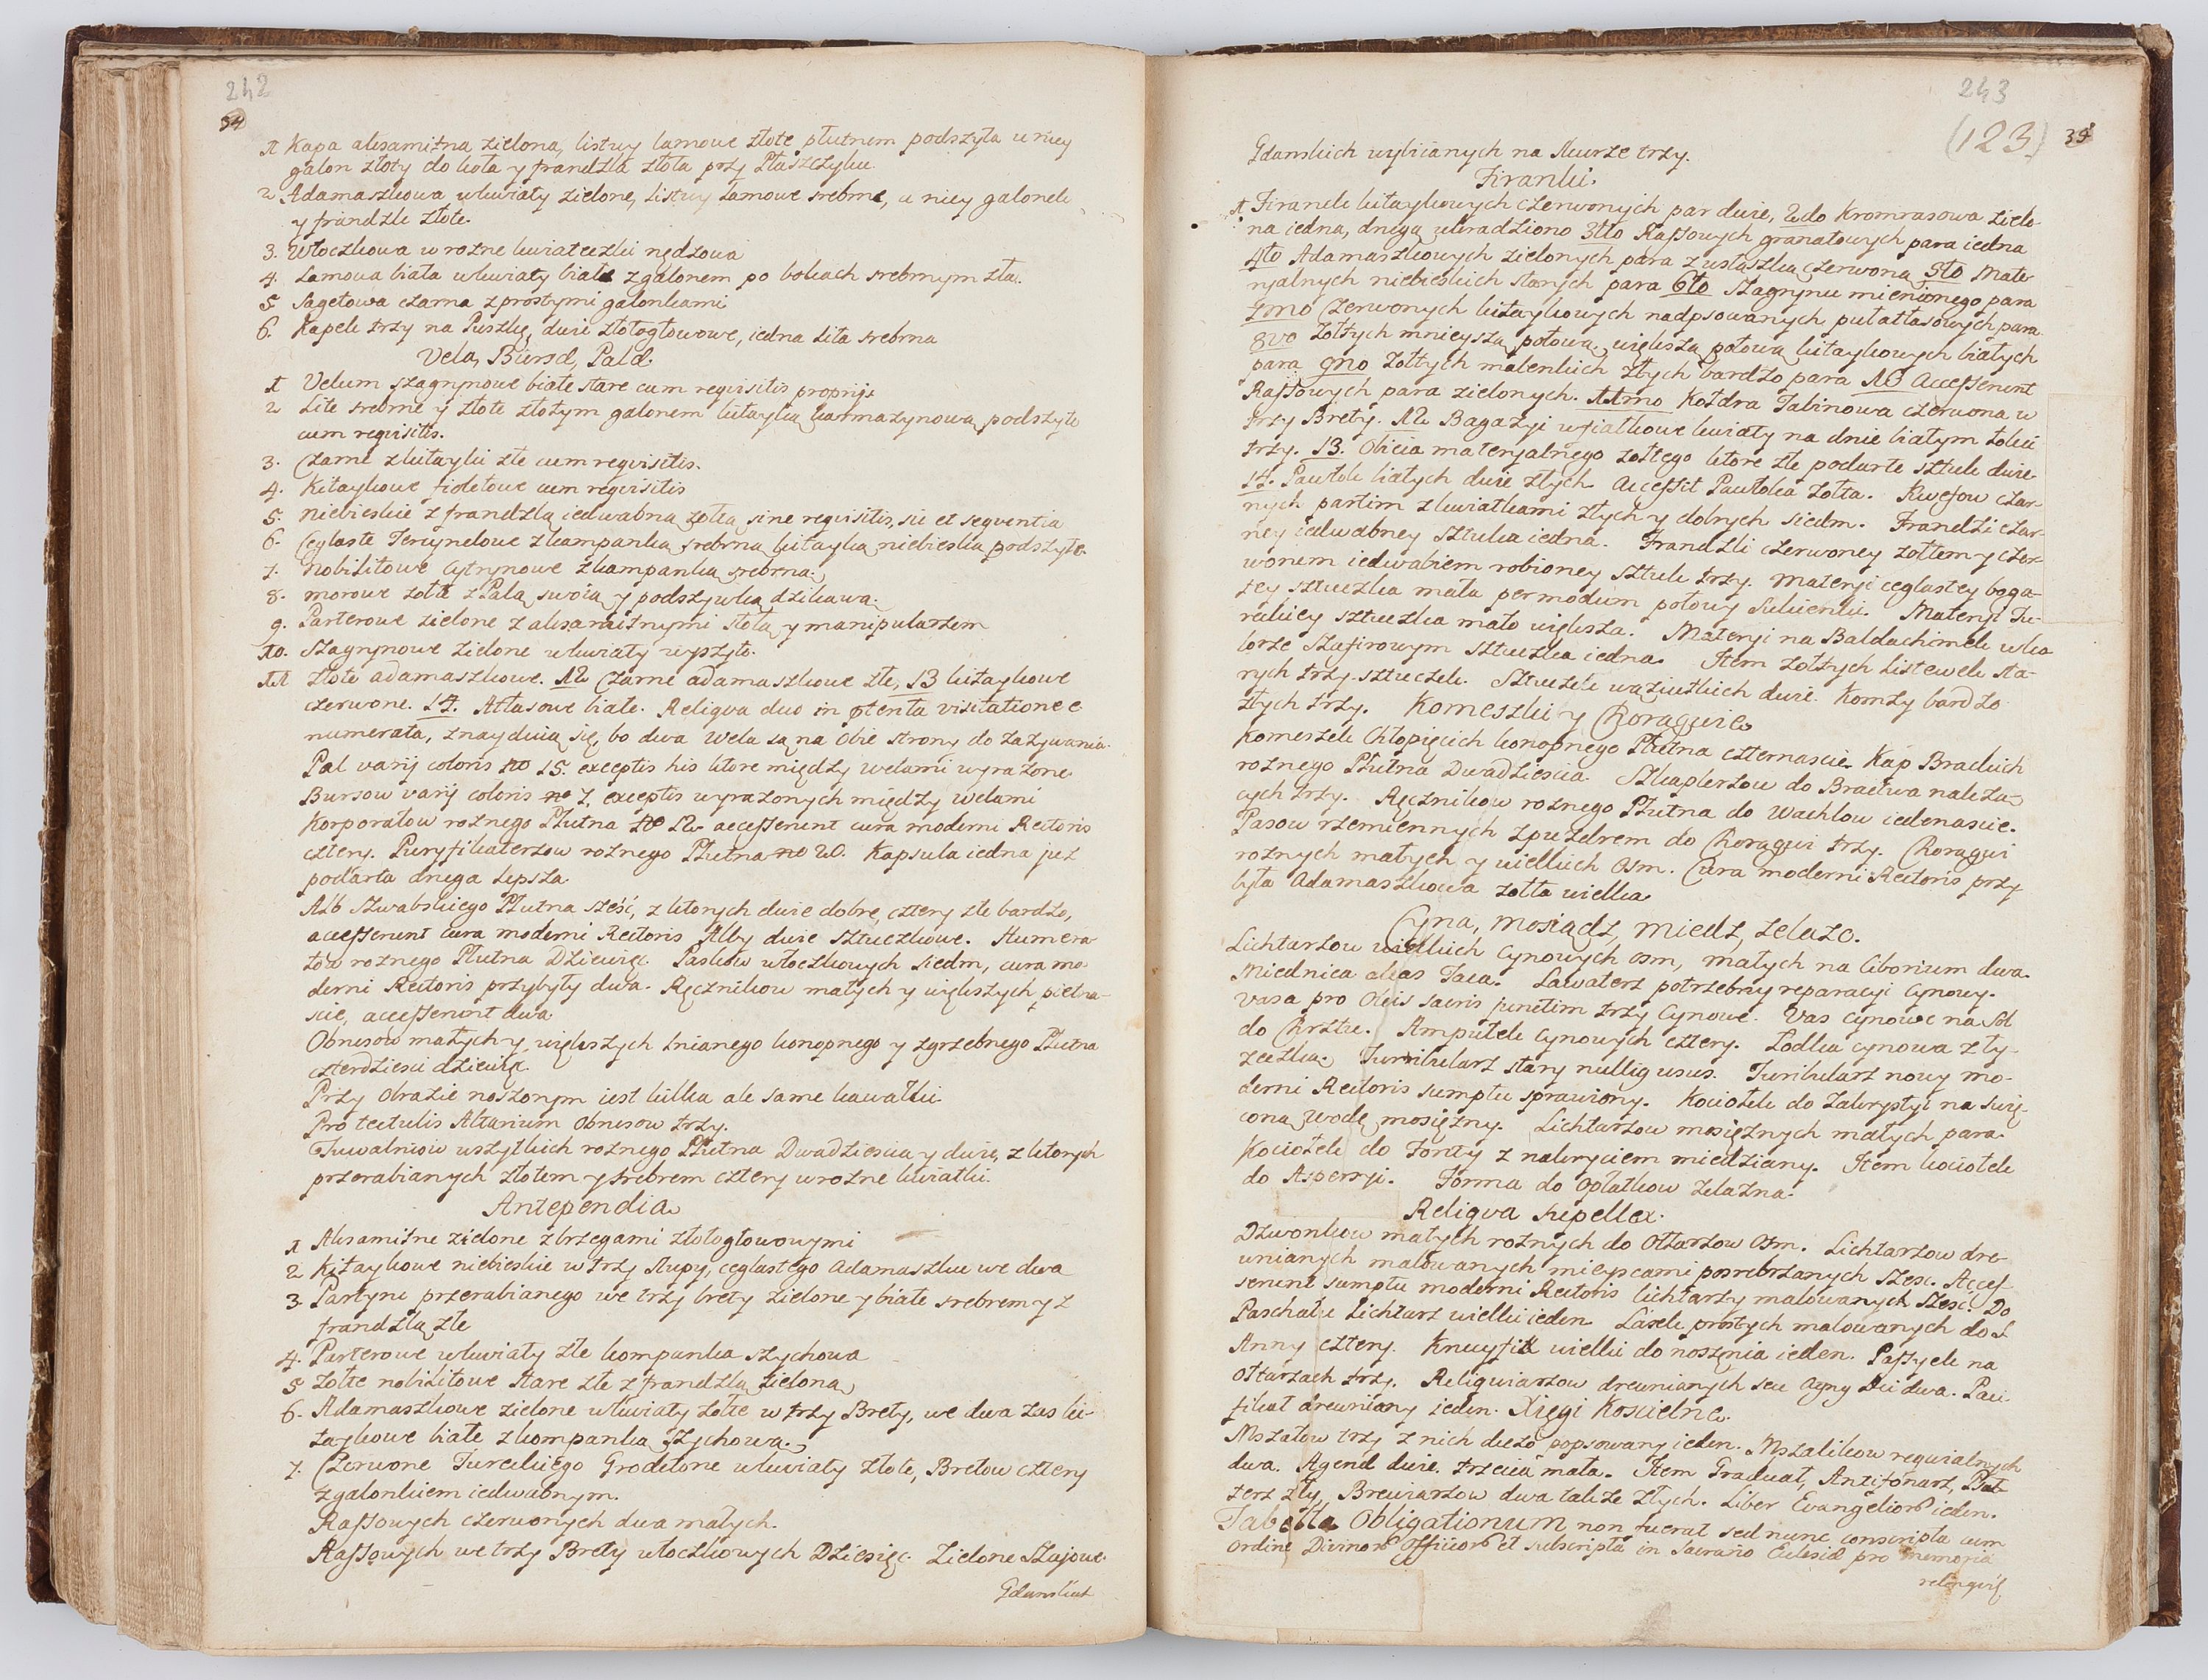 242
34
1 Kapa aksamitna zielona, listwy lamowe złote płutnem podszyta u niey
galon złoty do koła y frandzla złota przy Płaszczyku
2 Adamaszkowa w kwiaty zielone, Listwy Lamowe srebrne, u niey galonek
y frandzle złote.
3. Włoczkowa w rozne kwiateczki nędzowa
4. Lamowa biała w kwiaty białe z galonem po bokach srebrnym zła.
5. Sagetowa czarna z prostymi galonkami
6. Kapek trzy na Puszkę, dwie złotogłowowe, iedna Lita srebrna
Vela, Bursæ, Pald.
1 Velum szagrynowe białe stare cum reqvisitis proprijs
2 Lite srebrne y złote złotym galonem kitayką karmazynową podszyte
cum reqvisitis.
3. Czarne z kitayki złe cum reqvisitis.
4. Kitaykowe fioletowe cum reqvisitis
5. Niebieskie z frandzlą iedwabną żołtą sine reqvisitis, sic et seqventia
6. Ceglaste Tercynelowe z kampanką srebrną kitayką niebieską podszyte.
7. Nobilitowe Cytrynowe z kampanką srebrną.
8. morowe żołte z Palą swoią y podszywką dzikawą.
9. Parterowe zielone z aksamitnymi stołą y manipularzem
10. Szagrynowe zielone w kwiaty wyszyte.
11 Złote adamaszkowe. 12 Czarne adamaszkowe złe, 13 kitaykowe
czerwone. 14. Atłasowe białe. Reliqva duo in ptenta visitatione e
numerata, znayduią się, bo dwa Wela są na Obie strony do zazywania.
Pal varij coloris no 15. exceptis his ktore między welami wyrazone
Bursow varij coloris no 7, exceptis wyrazonych między Welami
Korporałow roznego Płutna no 12 accesserunt cura moderni Rectoris
cztery. Puryfikaterzow roznego Płutna no 20. Kapsuła iedna juz
podarta druga lepsza
Alb Szwabskiego Płutna sześć, z ktorych dwie dobre, cztery złe bardzo,
accesserunt cura moderni Rectoris Alby dwie Sztuczkowe. Humera
łow roznego Płutna Dziewięć Paskow włoczkowych siedm, cura mo-
derni Rectoris przybyły dwa. Ręcznikow małych y większych piętna-
scie, accesserunt dwa
Obrusow małych y większych lnianego konopnego y zgrzebnego Płutna
czterdziesci dziewięć.
Przy Obrazie noszonym iest kilka ale same kawałki
Pro tectulis Altarium Obrusow trzy.
Tuwalniow wszytkich roznego Płutna Dwadziescia y dwie, z ktorych
przerabianych złotem y srebrem cztery w rozne kwiatki.
Antependia
1 Aksamitne zielone z brzegami złotogłowowymi
2 Kitaykowe niebieskie w trzy słupy, ceglastego Adamaszku we dwa
3. Partynu przerabianego we trzy brety zielone y białe srebrem y z
frandzlą złe
4. Parterowe w kwiaty złe kompanka szychowa
5 żołte nobilitowe stare złe z frandzlą zieloną
6. Adamaszkowe zielone w kwiaty żołte w trzy Brety, we dwa zas ki-
taykowe białe z kompanką szychową.
7. Czerwone Tureckiego Grodetone w kwiaty złote, Bretow cztery
z galonkiem iedwabnym.
Rassowych czerwonych dwa małych.
Rassowych we trzy Brety włoczkowych Dziesięć. Zielone Szajowe
Gdanskich
243
(123) 35
Gdanskich wybiianych na Murze trzy.
Firanki.
1 Firanek kitaykowych czerwonych par dwie, 2do Kromrasowa zielo-
na iedna, drugą ukradziono 3tio Rassowych granatowych para iedna
4to Adamaszkowych zielonych para z wstąszką czerwoną 5to Mate-
ryalnych niebieskich starych para 6to Szagrynu mienionego para
7mo Czerwonych kitaykowych nadpsowanych pułatłasowych para
8vo żołtych mnieysza połowa, większa połowa kitaykowych białych
para 9no żołtych malenkich złych bardzo para 10 Accesserunt
Rassowych para zielonych. 11mo Kołdra Tabinowa czerwona w
trzy Brety. 12 Bagazyi w fiałkowe kwiaty na dnie białym łokci
trzy. 13. Obicia materyalnego żołtego ktore złe podarte sztuk dwie
14. Pawłok białych dwie złych Accessit Pawłoka żołta. Kwefow czar-
nych partim z kwiatkami złych y dobrych siedm. Frandzli czar-
ney iedwabney Sztuka iedna. Frandzli czerwoney żołtem y czer-
wonem iedwabiem robioney sztuk trzy. Materyi ceglastey boga-
tey sztuczka mała per modum połowy sukienki. Materyi Tu-
reckiey sztuczka mało większa. Materyi na Baldachimek w ko
lorze szafirowym sztuczka iedna. Item żołtych Listewek sta-
rych trzy sztuczek. Sztuczek wąziutkich dwie. Komży bardzo
złych trzy. Komeszki y Chorągwie
Komeszek Chłopięcich konopnego Płutna czternascie Kap Brackich
roznego Płutna Dwadziescia Szkaplerzow do Bractwa należą-
cych trzy. Ręcznikow roznego Płutna do Wachlow iedenascie.
Pasow rzemiennych z puzdrem do Chorągwi trzy. Chorągwi
roznych małych y wielkich Osm. Cura moderni Rectoris przy
była Adamaszkowa żołta wielka
Cyna, Mosiądz, Miedz, Zelazo.
Lichtarzow wielkich Cynowych osm, małych na Ciborium dwa.
Miednica alias Taca. Lawaterz potrzebny reparacyi Cynowy.
Vasa pro Oleis sacris junctim trzy Cynowe. Vas cynowe na sol
do Chrztu. Ampułek Cynowych cztery. Łodka cynowa z ły-
żeczką. Turribularz stary nullig usus. Turibularz nowy mo-
derni Rectoris sumptu sprawiony. Kociołek do Zakrystyi na swię-
coną Wodę mosięzny. Lichtarzow mosięznych małych para.
Kociołek do Fonty z nakryciem miedziany. Item kociołek
do Aspersyi. Forma do Opłatkow żelazna.
Reliqva supellex.
Dzwonkow małych roznych do Ołtarzow Osm. Lichtarzow dre-
wnianych malowanych mieyscami posrebrzanych szesc. Acces-
serunt sumptu moderni Rectoris lichtarzy malowanych Szesc. Do
Paschału Lichtarz wielki ieden Lasek prostych malowanych do S.
Anny cztery. Krucyfix wielki do noszęnia ieden. Passyek na
Ołtarzach trzy. Reliqviarzow drewnianych seu Agny Dei dwa. Paci-
fikał drewniany ieden. Xięgi Koscielne.
Mszałow trzy z nich duzo popsowany ieden. Mszalikow reqvialnych
dwa. Agend dwie. trzecia mała. Item Graduał, Antifonarz, Psał-
terz zły, Brewiarzow dwa takze złych. Liber Evangelior ieden.
Tabella Obligationum non fuerat sed nunc conscripta cum
Ordine Divinor Officior et subscripta in Sacrario Eclesiæ pro memoria